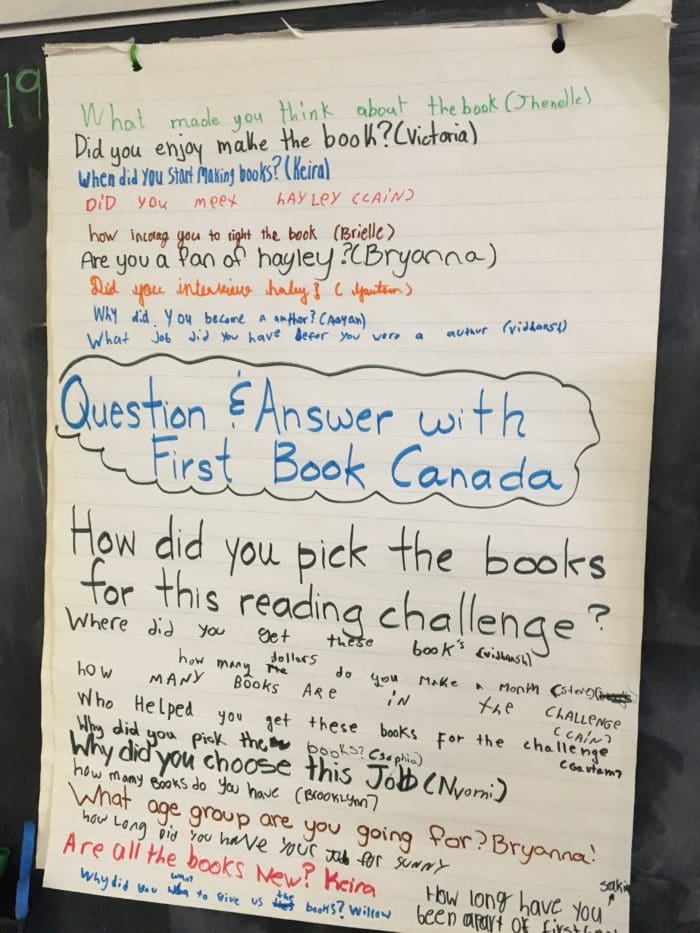 19
What made you think about the book (Jhenelle)
Did you enjoy make the book? (Victoria)
When did you start making books? (Keira)
DiD YOU meet HAYLEY (CAiN)
how incorag you to right the book (Brielle)
Are you a fan of hayley? (Bryanna)
Did you interview haley? (Gautam)
Why did you become a author? (Aayan)
What Job did you have befor you were a authur (vidhansh)
Question & Answer with
First Book Canada
How did you pick the books
for this reading challenge?
Where did you get these book's (vidhansh)
how many dollars do you make a month (steve)
how MANY The BOOKS ARE iN the CHALLENGE
(CAiN)
Who Helped you get these books for the challenge
(Gautam)
Why did you pick the books? (Sophia)
Why did you choose this Job (Nyomi)
how many Books do you have (BROOKLYNN)
What age group are you going for? Bryanna!
how Long DiD You haVe YouR Job for SUNNY
Are all the books New? Keira
Why did you want to Give us the books? Willow
How long have you
been apart of